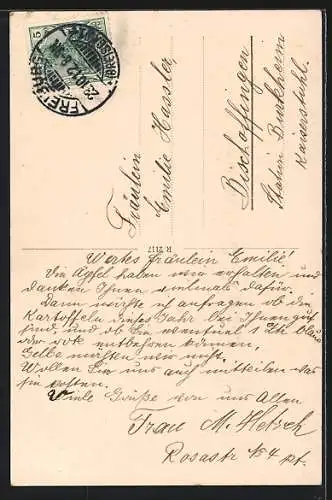 5
FREIBURG
(BREISGAU)
23.10.12. 8-9N.
Fräulein
Emilie Hassler
Bischoffingen
Station Burkheim
Kaiserstuhl.
R 2117
Wertes Fräulein Emilie!
Die Äpfel haben wir erhalten und
danken Ihnen vielmals dafür.
Dann möchte ich anfragen ob die
Kartoffeln dieses Jahr bei Ihnen gut
sind, und ob Sie eventuel 1 Ztr blaue
oder rote entbehren können,
Gelbe möchten wir nicht.
Wollen Sie uns auch mitteilen was
sie kosten.
Viele Grüße von uns Allen
Frau M. Hetsch
Rosastr No 4 pt.